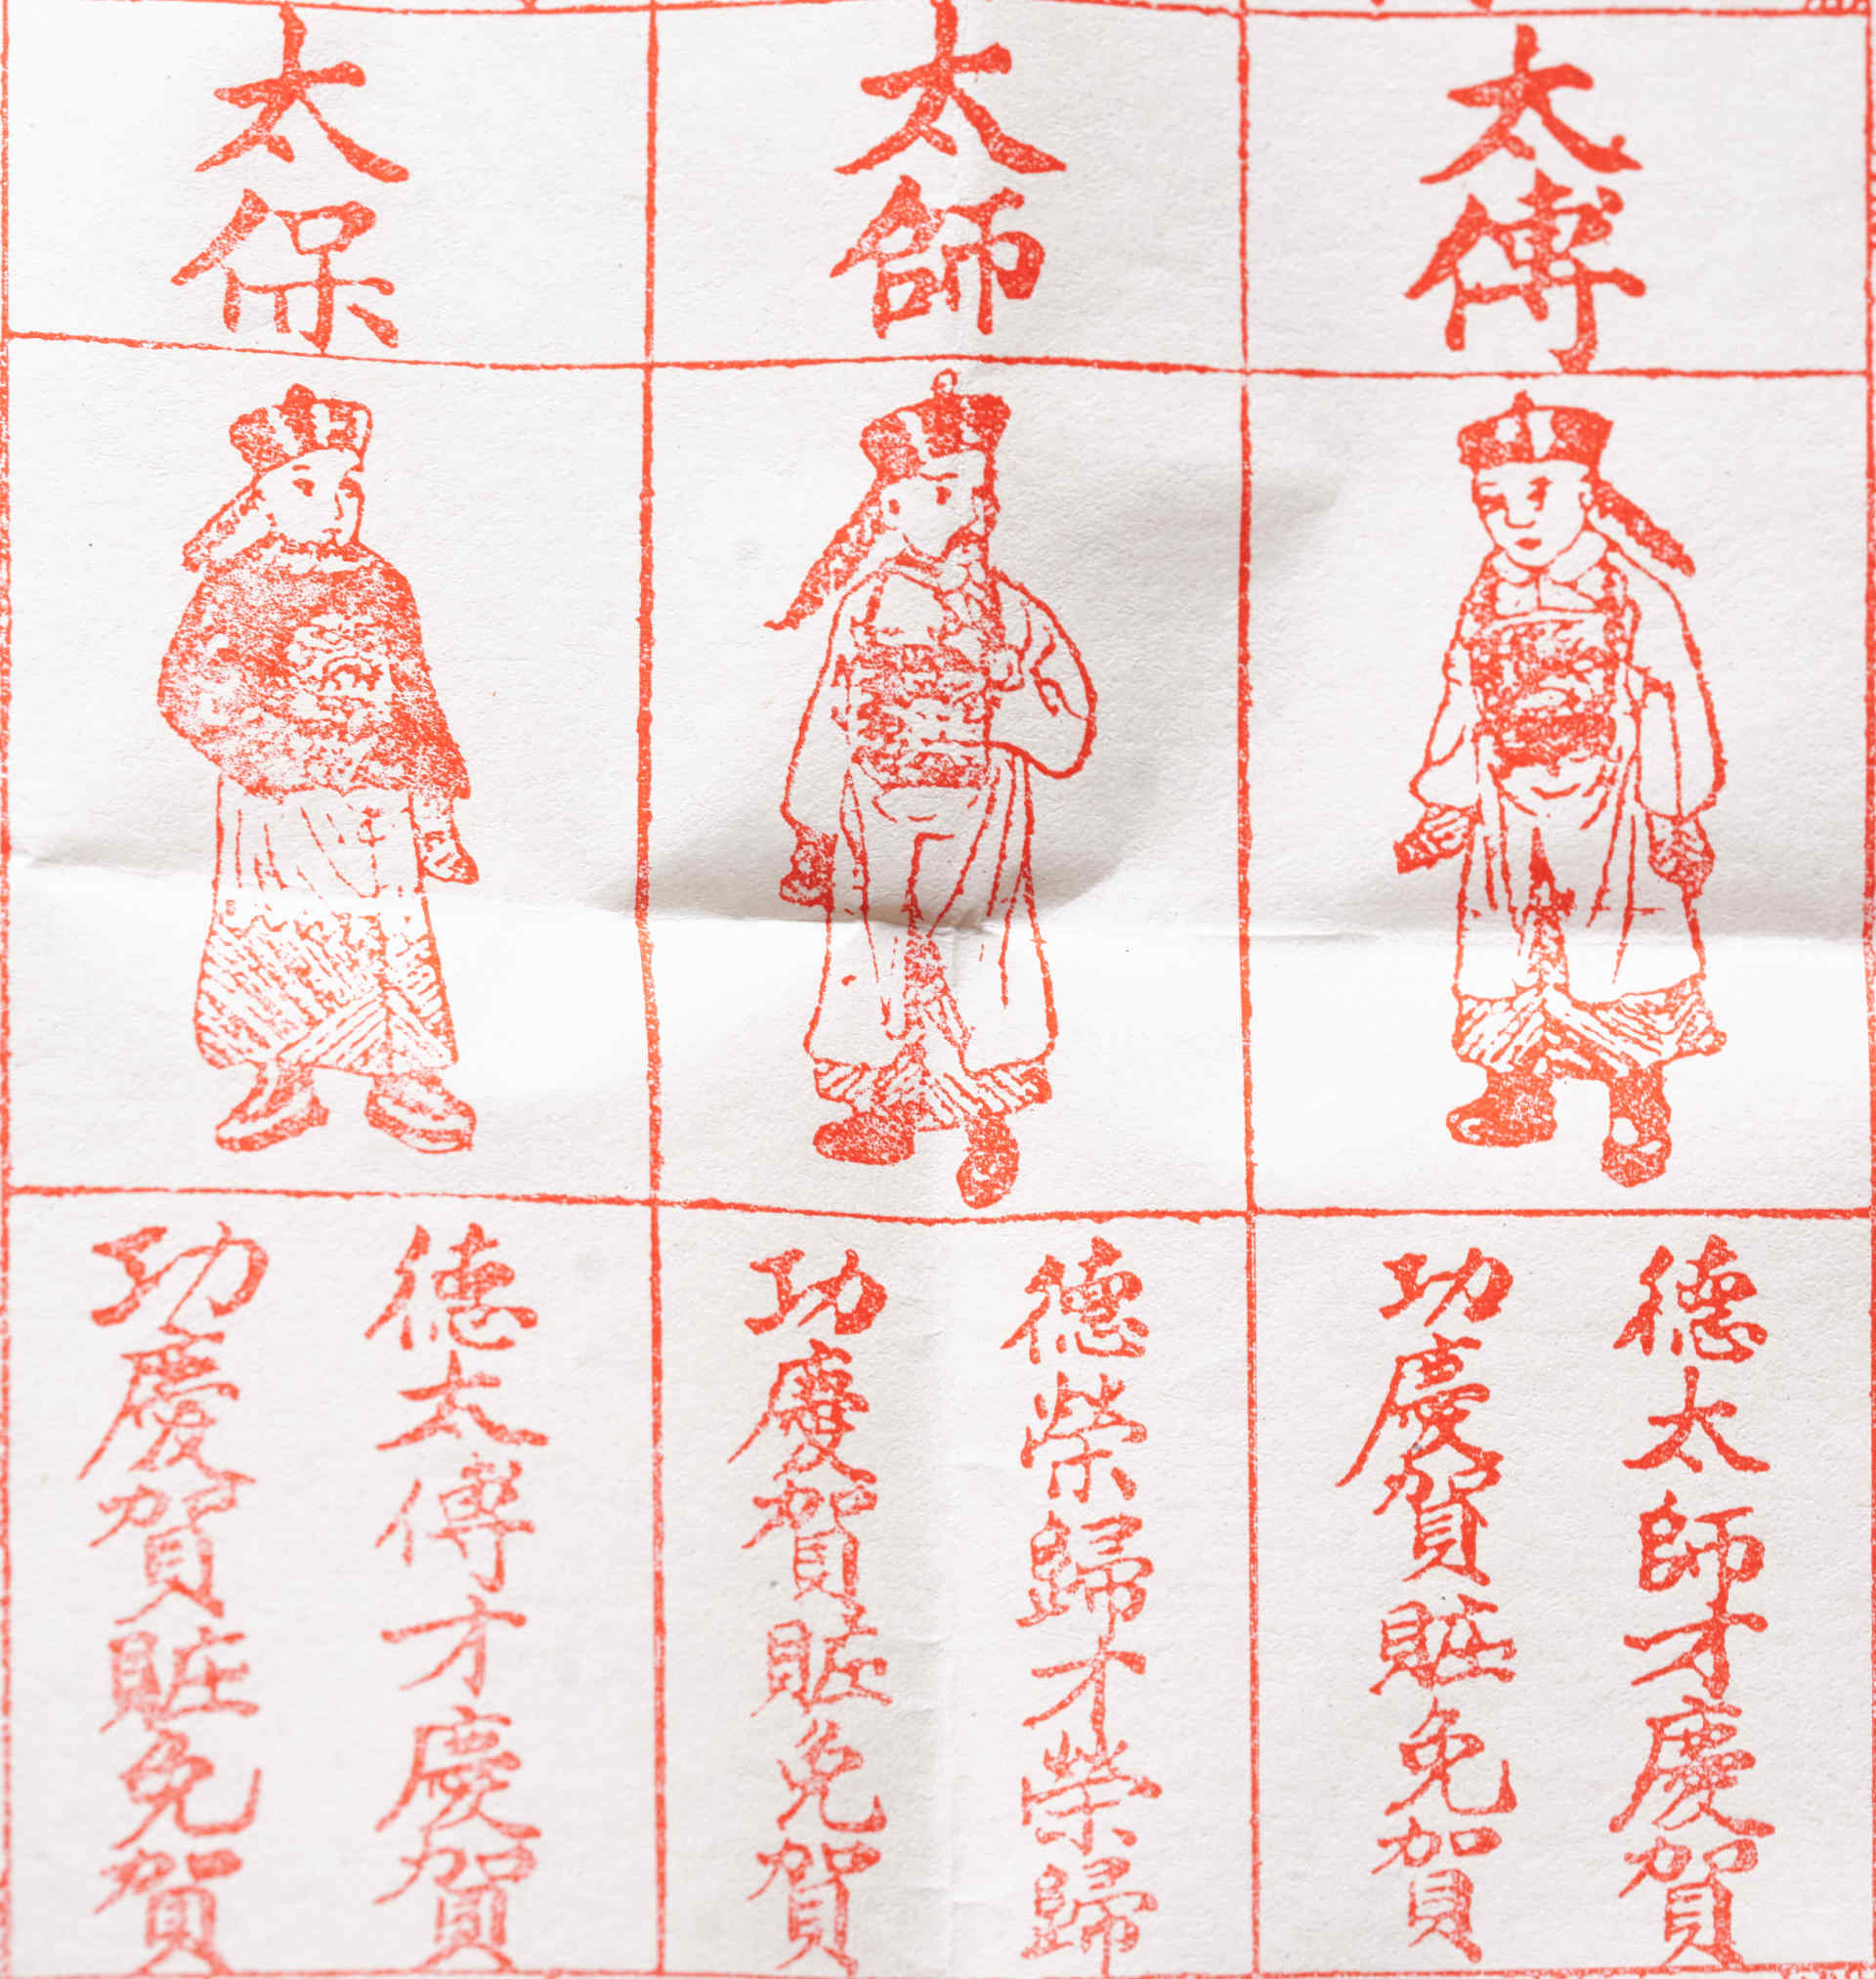 太傅
德太師才慶賀
功慶賀賍免賀
太師
德榮歸才榮歸
功慶賀賍免賀
太保
德太傅才慶賀
功慶賀賍免賀